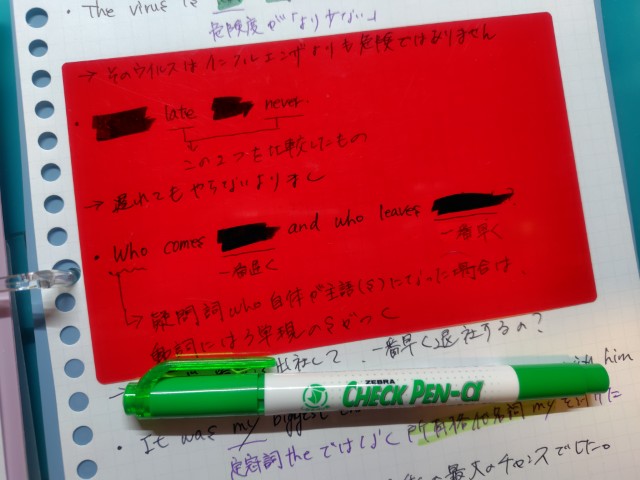 ・The virus is
危険度が「より少ない」
→ そのウイルスはインフルエンザよりも危険ではありません
・ late never.
この2つを比較したもの
→ 遅れてもやらないよりまし
・Who comes and who leaves
一番遅く 一番早く
疑問詞who自体が主語(S)になった場合は
動詞には3単現のSがつく
→ 出社して、一番早く退社するの？
ZEBRA
CHECK PEN-α
・It was my biggest him
定冠詞theではなく所有格代名詞myを付けた
最大のチャンスでした。